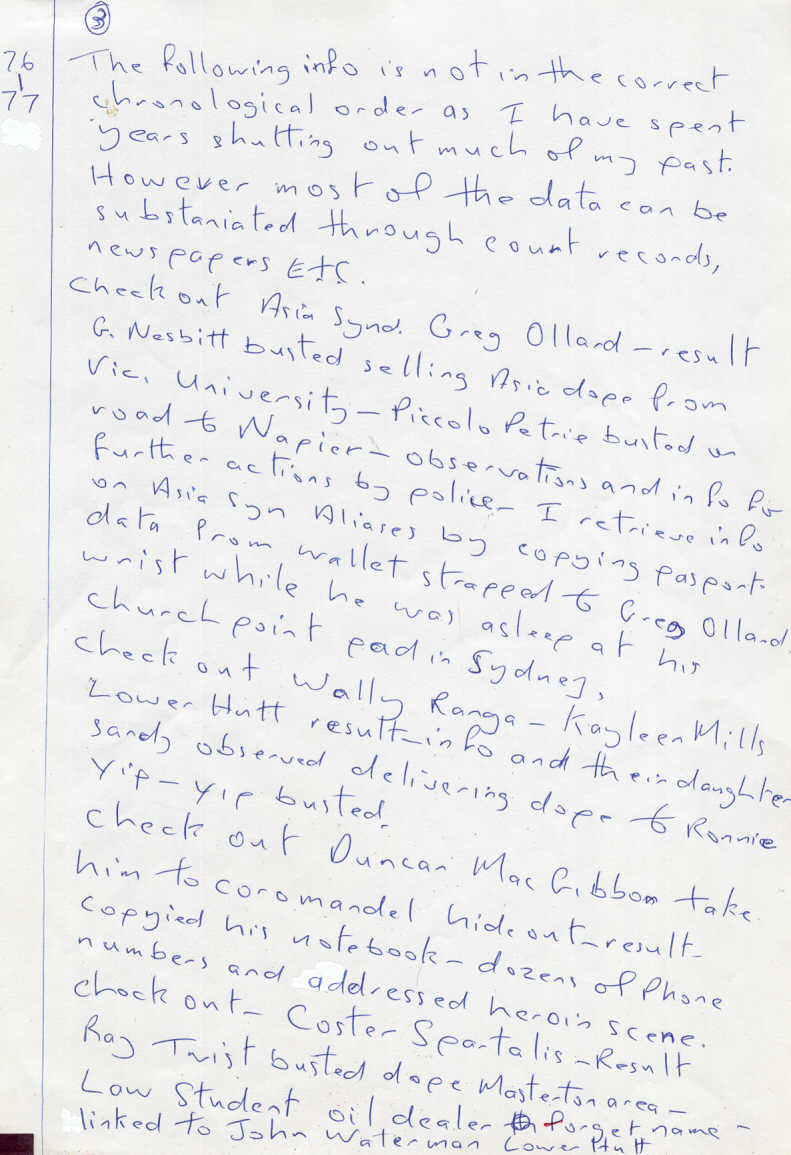 3
76
|
77
The following info is not in the correct
chronological order as I have spent
years shutting out much of my past.
However most of the data can be
substaniated through count records,
newspapers ETC.
Check out Asia Synd. Greg Ollard – result
G. Nesbitt busted selling Asia dope from
Vic. University – Piccolo Petrie busted on
road to Napier – observations and info for
further actions by police – I retrieve info
on Asia Syn Aliases by copying pasport
data from wallet strapped to Greg Ollard.
wrist while he was asleep at his
church point pad in Sydney,
check out Wally Ranga – Kayleen Mills
Lower Hutt result – info and their daughter
Sandy observed delivering dope to Ronnie
Yip – Yip busted.
check out Duncan MacGibbon take
him to coromandel hideout – result –
copyied his notebook – dozens of Phone
numbers and addressed heroin scene.
chock out – Coster Spartalis – Result
Ray Twist busted dope Masterton area –
Law Student oil dealer forget name –
linked to John Waterman Lower Hutt